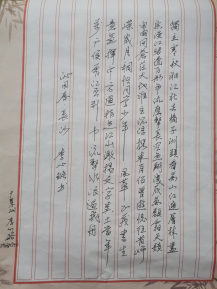 獨立寒秋湘江北去橘子洲頭看萬山紅遍層林盡
染漫江碧透百舸爭流鷹擊長空魚翔淺底萬類霜天競
自由問蒼茫大地誰主沉浮攜來百侶曾遊憶往昔崢
嶸歲月稠恰同學少年風華正茂書生
意氣揮斥方遒指點江山激揚文字糞土當年
萬户侯曾記否到中流擊水浪遏飛舟
沁园春 長沙 李 书